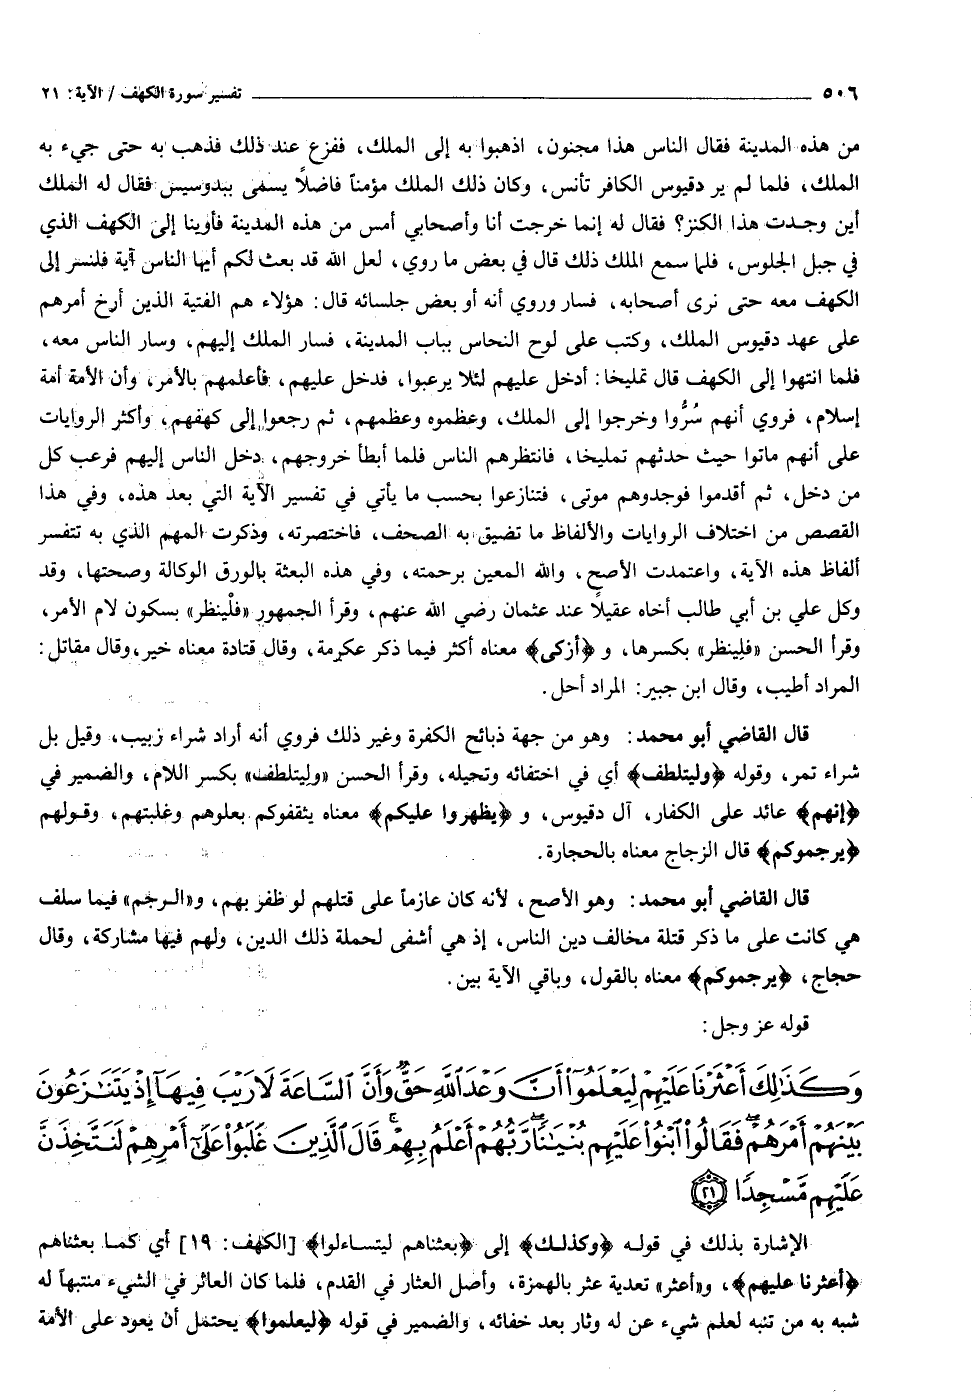 ٥٠٦ ـــــــــــــــــــــــــــــــ تفسير سورة الكهف / الآية: ٢١
من هذه المدينة فقال الناس هذا مجنون، اذهبوا به إلى الملك، ففزع عند ذلك فذهب به حتى جيء به
الملك، فلما لم ير دقيوس الكافر تأنس، وكان ذلك الملك مؤمناً فاضلاً يسمى ببدوسيس فقال له الملك
أين وجدت هذا الكنز؟ فقال له إنما خرجت أنا وأصحابي أمس من هذه المدينة فأوينا إلى الكهف الذي
في جبل الجلوس، فلما سمع الملك ذلك قال في بعض ما روي، لعل الله قد بعث لكم أيها الناس آية فلنسر إلى
الكهف معه حتى نرى أصحابه، فسار وروي أنه أو بعض جلسائه قال: هؤلاء هم الفتية الذين أرخ أمرهم
على عهد دقيوس الملك، وكتب على لوح النحاس بباب المدينة، فسار الملك إليهم، وسار الناس معه،
فلما انتهوا إلى الكهف قال تمليخا: أدخل عليهم لئلا يرعبوا، فدخل عليهم، فأعلمهم بالأمر، وأن الأمة أمة
إسلام، فروي أنهم سُرُّوا وخرجوا إلى الملك، وعظموه وعظمهم، ثم رجعوا إلى كهفهم، وأكثر الروايات
على أنهم ماتوا حيث حدثهم تمليخا، فانتظرهم الناس فلما أبطأ خروجهم، دخل الناس إليهم فرعب كل
من دخل، ثم أقدموا فوجدوهم موتى، فتنازعوا بحسب ما يأتي في تفسير الآية التي بعد هذه، وفي هذا
القصص من اختلاف الروايات والألفاظ ما تضيق به الصحف، فاختصرته، وذكرت المهم الذي به تتفسر
ألفاظ هذه الآية، واعتمدت الأصح، والله المعين برحمته، وفي هذه البعثة بالورق الوكالة وصحتها، وقد
وكل علي بن أبي طالب أخاه عقيلاً عند عثمان رضي الله عنهم، وقرأ الجمهور «فلْينظر» بسكون لام الأمر،
وقرأ الحسن «فلِينظر» بكسرها، و ﴿أزكى﴾ معناه أكثر فيما ذكر عكرمة، وقال قتادة معناه خير، وقال مقاتل:
المراد أطيب، وقال ابن جبير: المراد أحل.
قال القاضي أبو محمد: وهو من جهة ذبائح الكفرة وغير ذلك فروي أنه أراد شراء زبيب، وقيل بل
شراء تمر، وقوله ﴿وليتلطف﴾ أي في اختفائه وتحيله، وقرأ الحسن «ولِيتلطف» بكسر اللام، والضمير في
﴿إنهم﴾ عائد على الكفار، آل دقيوس، و ﴿يظهروا عليكم﴾ معناه يثقفوكم بعلوهم وغلبتهم، وقولهم
﴿يرجموكم﴾ قال الزجاج معناه بالحجارة.
قال القاضي أبو محمد: وهو الأصح، لأنه كان عازماً على قتلهم لو ظفر بهم، و«الرجم» فيما سلف
هي كانت على ما ذكر قتلة مخالف دين الناس، إذ هي أشفى لحملة ذلك الدين، ولهم فيها مشاركة، وقال
حجاج، ﴿يرجموكم﴾ معناه بالقول، وباقي الآية بين.
قوله عز وجل:
وَكَذَٰلِكَ أَعْثَرْنَا عَلَيْهِمْ لِيَعْلَمُوٓا۟ أَنَّ وَعْدَ ٱللَّهِ حَقٌّ وَأَنَّ ٱلسَّاعَةَ لَا رَيْبَ فِيهَآ إِذْ يَتَنَٰزَعُونَ
بَيْنَهُمْ أَمْرَهُمْ ۖ فَقَالُوا۟ ٱبْنُوا۟ عَلَيْهِم بُنْيَٰنًا ۖ رَّبُّهُمْ أَعْلَمُ بِهِمْ ۚ قَالَ ٱلَّذِينَ غَلَبُوا۟ عَلَىٰٓ أَمْرِهِمْ لَنَتَّخِذَنَّ
عَلَيْهِم مَّسْجِدًا ﴿٢١﴾
الإشارة بذلك في قوله ﴿وكذلك﴾ إلى ﴿بعثناهم ليتساءلوا﴾ [الكهف: ١٩] أي كما بعثناهم
﴿أعثرنا عليهم﴾، و«أعثر» تعدية عثر بالهمزة، وأصل العثار في القدم، فلما كان العاثر في الشيء منتبهاً له
شبه به من تنبه لعلم شيء عن له وثار بعد خفائه، والضمير في قوله ﴿ليعلموا﴾ يحتمل أن يعود على الأمة